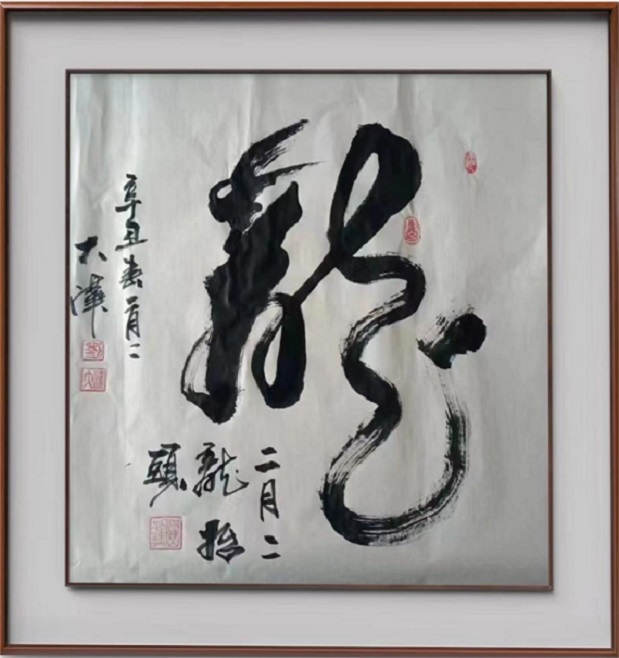 龍
二月二
龍抬
頭
辛丑春二月二
大